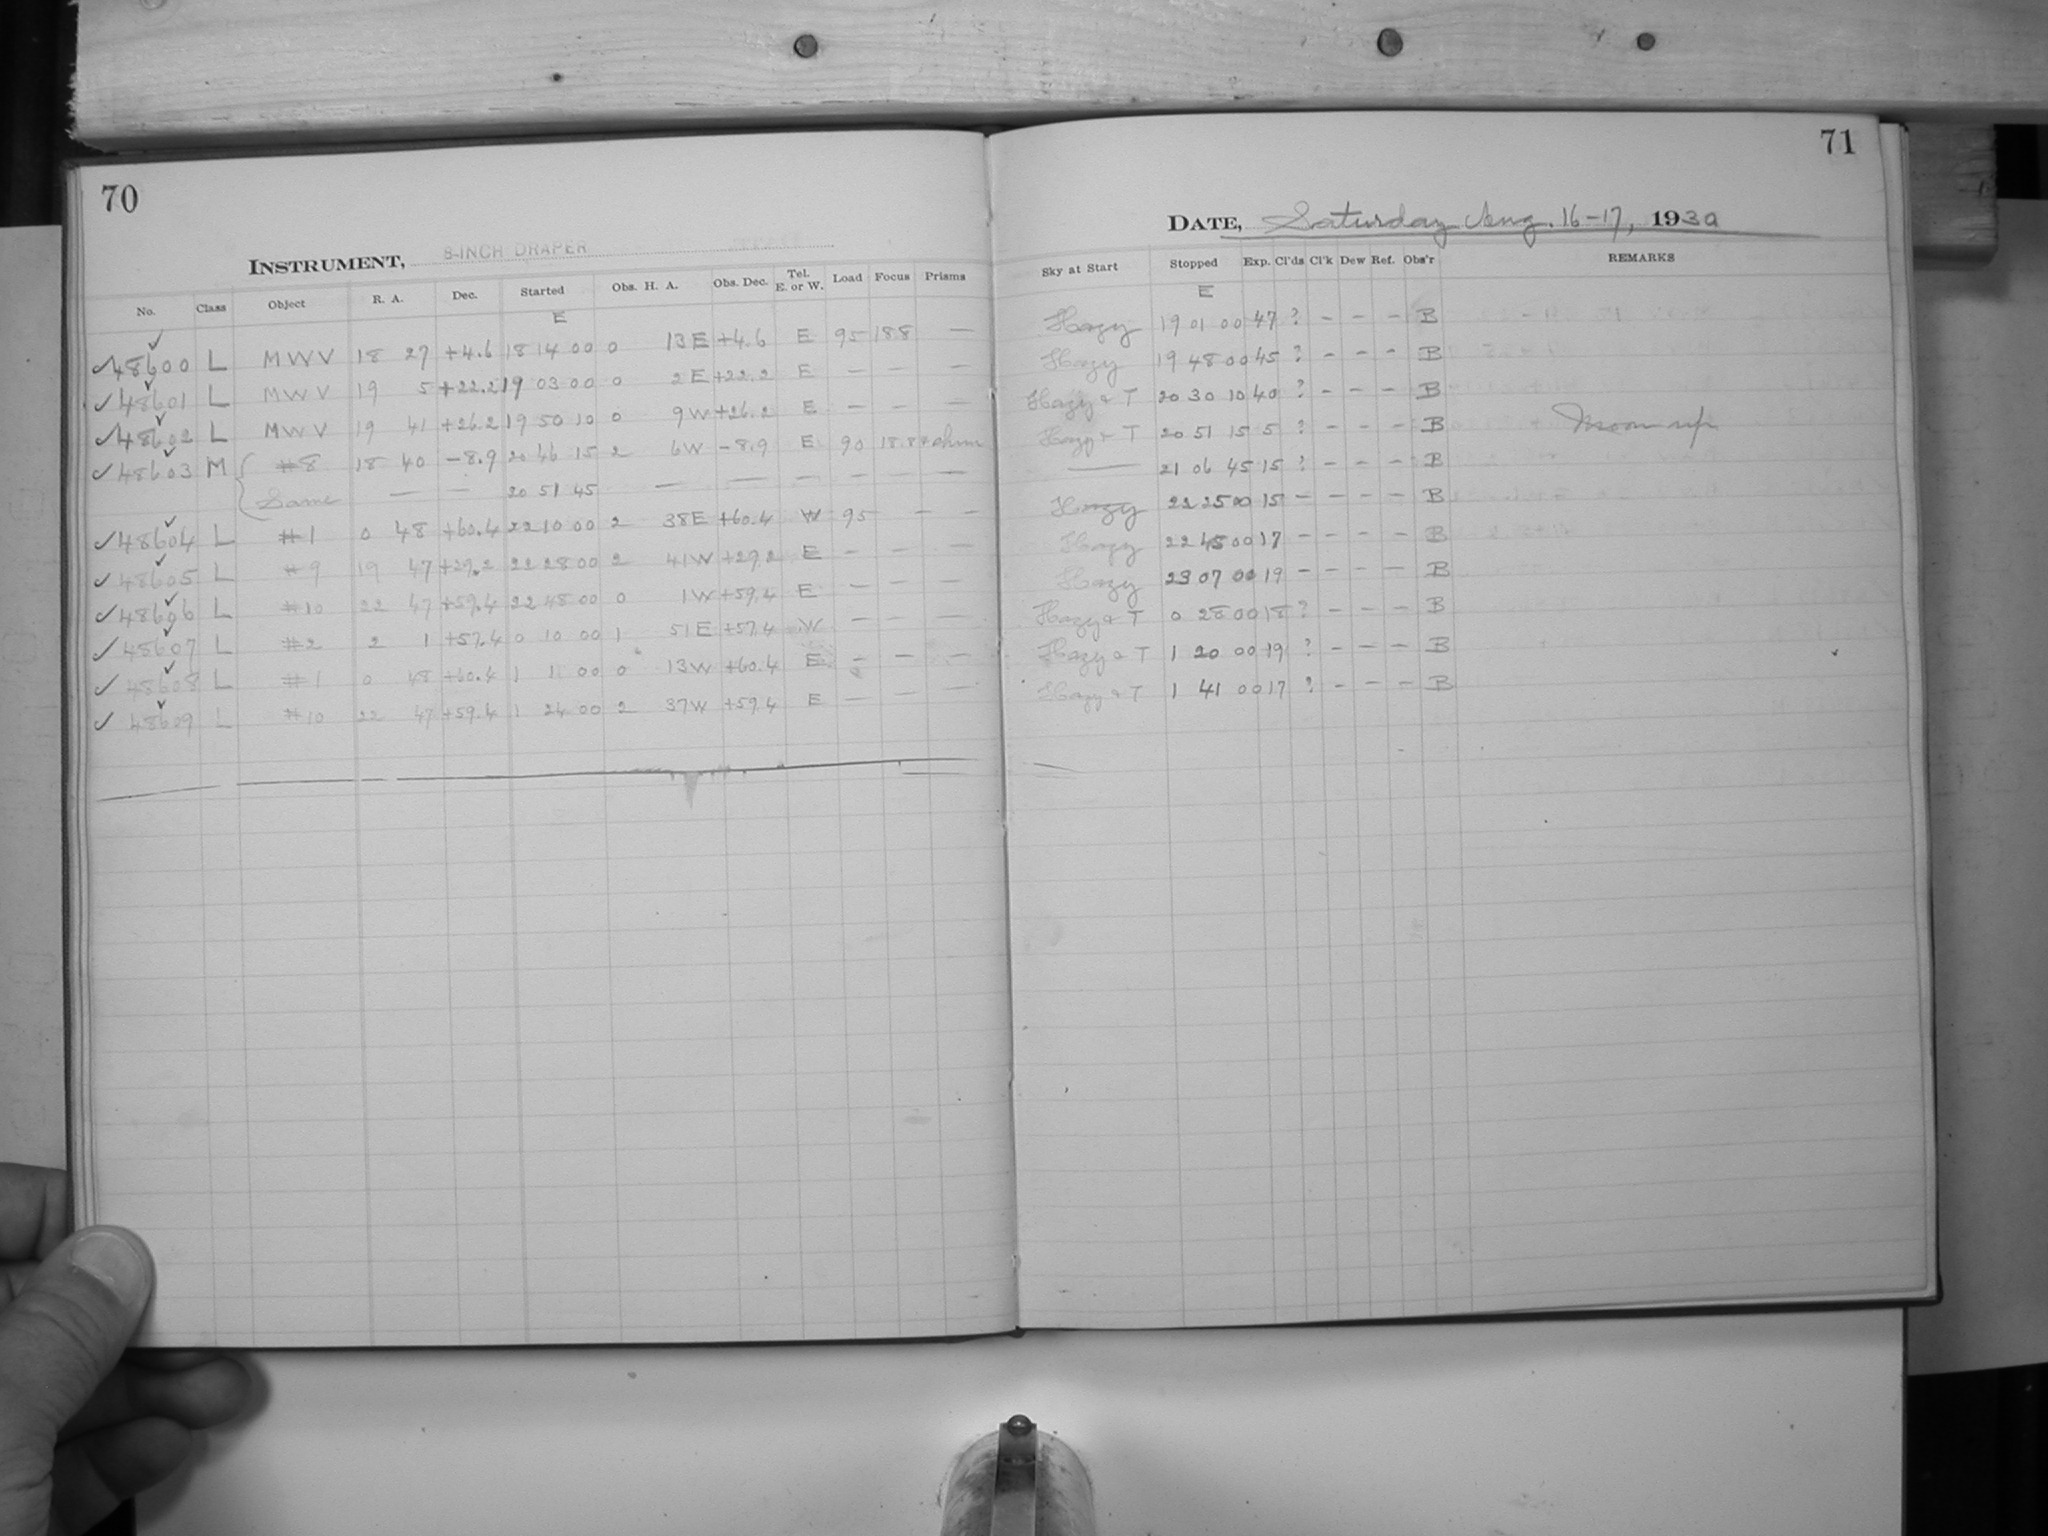 70
INSTRUMENT, 8-INCH DRAPER
No. Class Object R. A. Dec. Started Obs. H. A. Obs. Dec. Tel. E. or W. Load Focus Prisms
E
✓48600 L MWV 18 27 +4.6 18 14 00 0 13E +4.6 E 95 18.8 —
✓48601 L MWV 19 5 +22.2 19 03 00 0 2E +22.2 E — — —
✓48602 L MWV 19 41 +26.2 19 50 10 0 9W +26.2 E — — —
✓48603 M #8 18 40 -8.9 20 46 15 2 6W -8.9 E 90 18.8
Same — — 20 51 45 — — — — — —
✓48604 L #1 0 48 +60.4 22 10 00 2 38E +60.4 W 95 — —
✓48605 L #9 19 47 +29.2 22 28 00 2 41W +29.2 E — — —
✓48606 L #10 22 47 +59.4 22 48 00 0 1W +59.4 E — — —
✓48607 L #2 2 1 +57.4 0 10 00 1 51E +57.4 W — — —
✓48608 L #1 0 48 +60.4 1 1 00 0 13W +60.4 E — — —
✓48609 L #10 22 47 +59.4 1 24 00 2 37W +59.4 E — — —
71
DATE, Saturday Aug. 16-17, 1930
Sky at Start Stopped Exp. Cl'ds Cl'k Dew Ref. Obs'r REMARKS
E
Hazy 19 01 00 47 ? - - - B
Hazy 19 48 00 45 ? - - - B
Hazy & T 20 30 10 40 ? - - - B
Hazy & T 20 51 15 5 ? - - - B Moon up
— 21 06 45 15 ? - - - B
Hazy 22 25 00 15 - - - - B
Hazy 22 45 00 17 - - - - B
Hazy 23 07 00 19 - - - - B
Hazy & T 0 28 00 18 ? - - - B
Hazy & T 1 20 00 19 ? - - - B
Hazy & T 1 41 00 17 ? - - - B